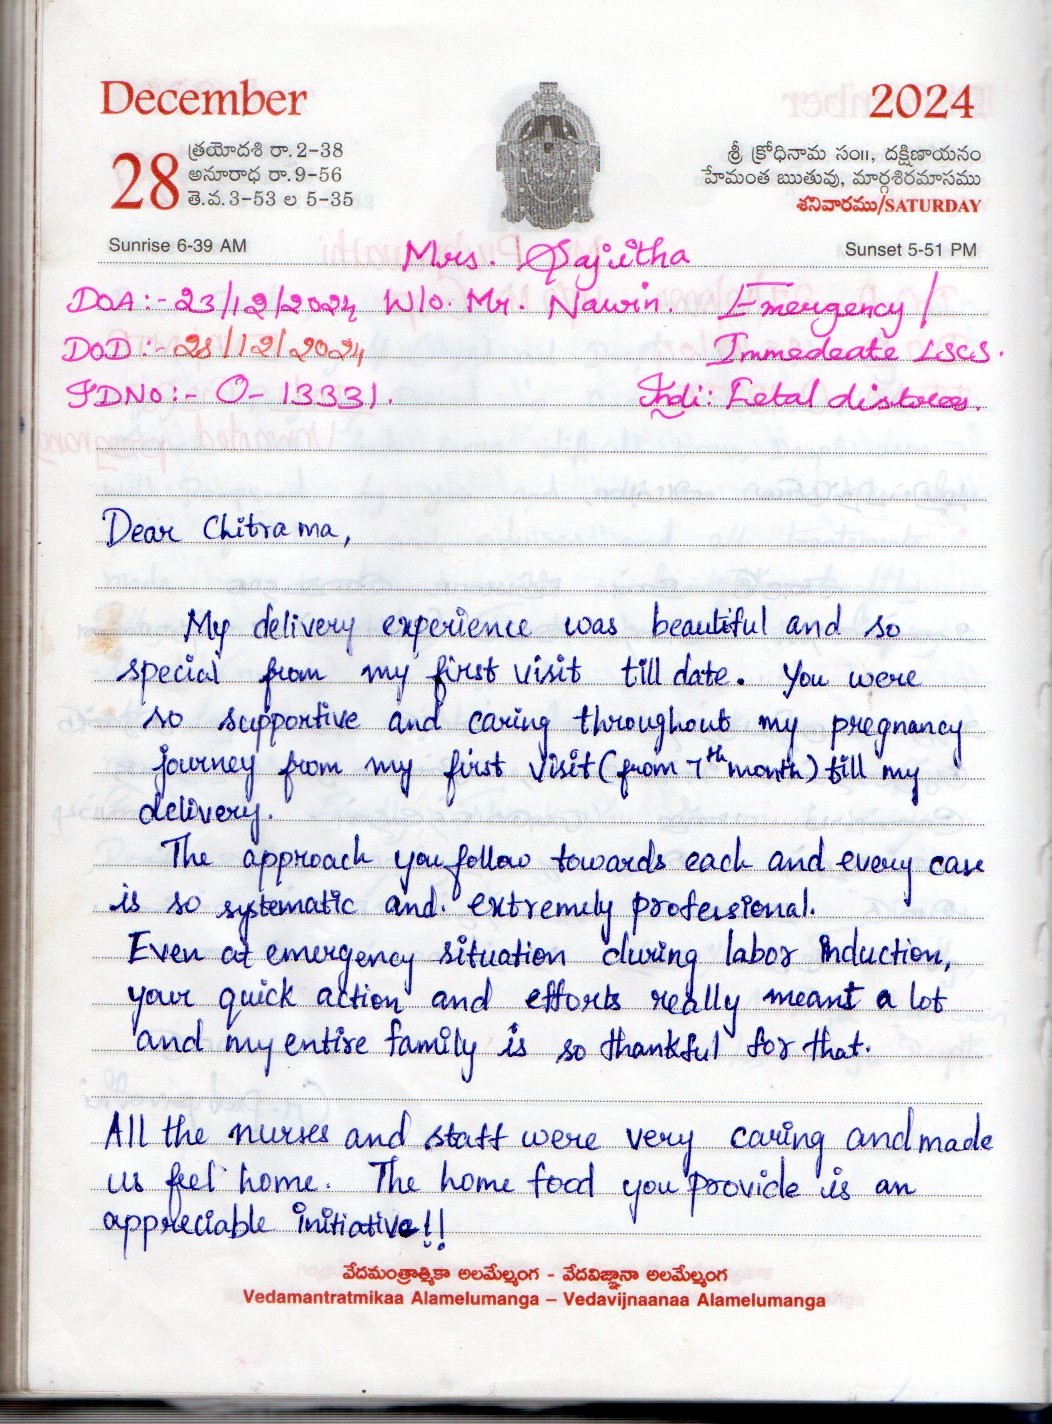 December
2024
28
త్రయోదశి రా.2-38
అనూరాధ రా.9-56
తె.వ.3-53 ల 5-35
శ్రీ క్రోధినామ సం॥, దక్షిణాయనం
హేమంత ఋతువు, మార్గశిరమాసము
శనివారము/SATURDAY
Sunrise 6-39 AM
Sunset 5-51 PM
Mrs. Sajitha
DOA:- 23/12/2024 W/o. Mr. Nawin. Emergency /
DOD:- 28/12/2024 Immedeate LSCS.
IDNO:- O-13331. Indi: Fetal distress.
Dear Chitra ma,
My delivery experience was beautiful and so
special from my first visit till date. You were
so supportive and caring throughout my pregnancy
journey from my first visit (from 7th month) till my
delivery.
The approach you follow towards each and every case
is so systematic and extremely professional.
Even at emergency situation during labor induction,
your quick action and efforts really meant a lot
and my entire family is so thankful for that.
All the nurses and staff were very caring and made
us feel home. The home food you provide is an
appreciable initiative!!
వేదమంత్రాత్మికా అలమేల్మంగ - వేదవిజ్ఞానా అలమేల్మంగ
Vedamantratmikaa Alamelumanga – Vedavijnaanaa Alamelumanga